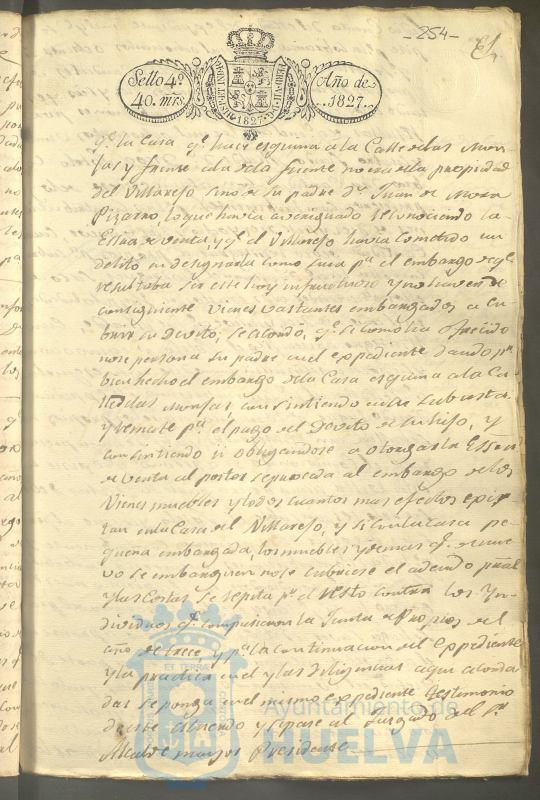 -254-
Sello 4º
40. mrs.
Año de
1827.
qe. la Casa qe. hace esquina a la Calle delas Mon-
jas y frente ala dela fuente no era dela propiedad
del Villarejo sino de su padre dn. Juan de Mora
Pizarro, lo que havia averiguado reconociendo la
Essra de venta, y qe. el Villarejo havia cometido un
delito en designarla como suya pa. el embargo de qe.
resultaba ser este hoy infructuoso y no haver de
consiguiente vienes vastantes embargados a cu-
brir su devito; se acordó, qe. si como ha ofrecido
no se persona su padre en el expediente dando pr.
bien hecho el embargo dela Casa esquina ala Ca-
lle delas Monjas, consintiendo en su subasta
y remate pa. el pago del devito de su hijo, y
consintiendo u obligandose a otorgar la Essra
de venta al postor se proceda al embargo de los
vienes muebles y todos cuantos mas efectos exis-
tan en la Casa del Villarejo, y si con la casa pe-
queña embargada, los muebles y demas qe. de nue-
vo se embarguen no se cubriese el adeudo pral
y las Costas se repita pr. el resto contra los Yn-
dividuos qe. compusieron la Junta de Propios del
año de trece y pa. la continuacion del Expediente
y la practica en el y las diligencias aqui acorda
das se ponga en el mismo expediente testimonio
de este acuerdo y se pase al Juzgado del Sr.
Alcalde mayor Presidente
Ayuntamiento de
HUELVA